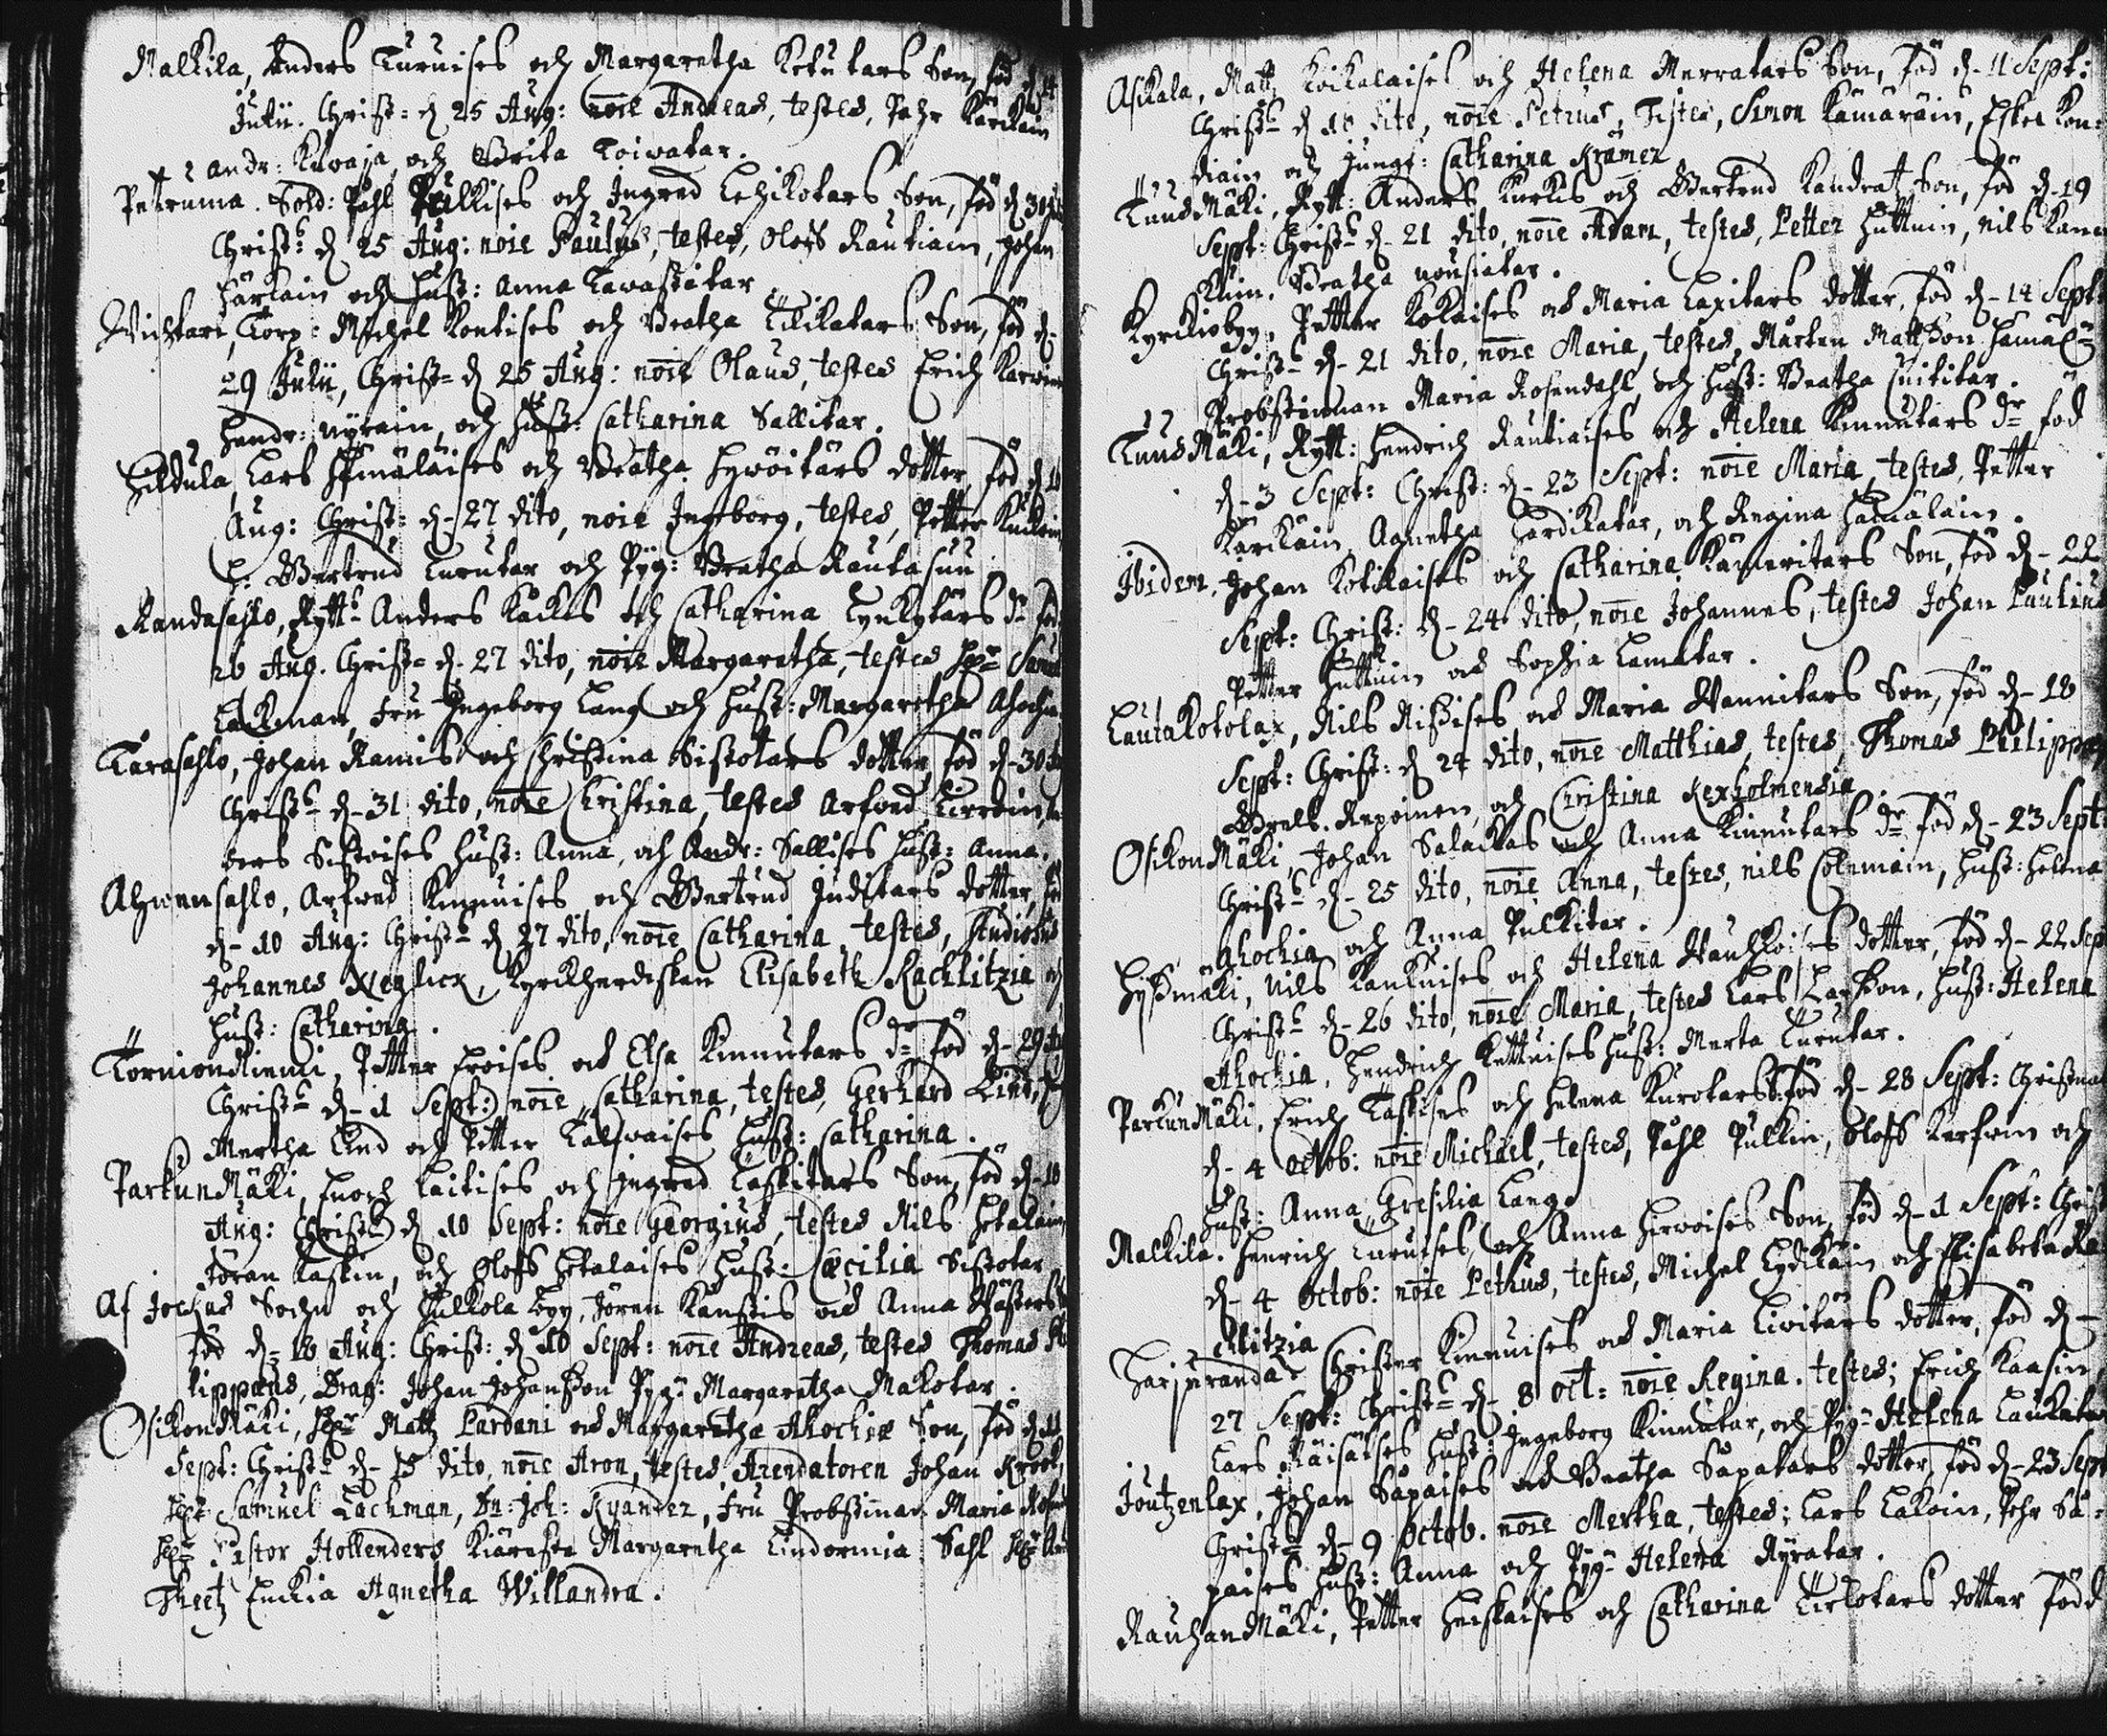 Malkila, Anders Turuises och Margaretha Ketutars Son, föd d 14
Julii. Christ= d 25 Aug: noīe Andreas, testes, Pähr Kärckäin
Andr: Kuwaja och Brita Toiwatar.
Petruma. Sold: Påhl Pulkises och Ingred Lehikotars Son, föd d 30
Christ= d 25 Aug: noīe Paulus, testes, Oloff Rautiain, Johan
Härkäin och Hust: Anna Tawastitar
Wichtari, Torp: Michel Kontises och Beatha Tilikatars Son, föd d-
29 Julii, Christ= d 25 Aug: noīe Olaus, testes Erich Karwin
Hendr: Nyräin, och Hust: Catharina Sallitar.
Hildula, Lars Hämäläises och Beatha Hywöitärs dotter, föd d 10
Aug: Christ= d-27 dito, noīe Ingeborg, testes, Petter
H: Gertrud Turutar och Pyg: Beatha Rautasuu
Randasahlo, Rytt= Anders Käckes och Catharina Lyykytärs dr föd
26 Aug. Christ= d-27 dito, noīe Margaretha, testes Hr Samuel
Lackman, Fru Ingeborg Lang och Hust: Margaretha Ahochia
Karasahlo, Johan Ramis och Christina Sistotars dotter, föd d-30
Christ= d-31 dito, noīe Christina, testes Arfved
ders Sistoises Hust: Anna, och Andr: Sallises Hust: Anna.
Ahwensahlo, Arfved Kinnuises och Gertrud Juditars dotter, föd
d-10 Aug: Christ= d 27 dito, noīe Catharina, testes, Studiosus
Johannes Neglick, Kyrckherdiskan Elisabeth Rachlitzia och
Hust: Catharina.
Torniondniemi, Petter Eroises och Elsa Kinnutars dr föd d-29
Christ= d-1 Sept: noīe Catharina, testes, Gerhard Lind,
Mertha Lind och Petter Talwaises Hust: Catharina.
Parkundmäki, Enoch Laitises och Ingred Laskitars Son, föd d-18
Aug: Christ= d 10 Sept: noīe Georgius, testes Nils Hekalain,
Jöran Laskin, och Oloff Hekalaises Hust: Cæcilia Sistotar
Af Jockas Sochn och Hulkola byy, Jören Känstis och Anna
föd d-18 Aug: Christ: d 10 Sept: noīe Andreas, testes Thomas Phi
lippæus, Drag: Johan Johansson Pyg: Margaretha Makotar.
Osikondmäki, Hr Matz Pardani och Margaretha Ahochiæ Son, föd d 11
Sept: Christ= d-15 dito, noīe Aron, testes, Arendatoren Johan Krook,
Hr Samuel Lachman, Dn: Joh: Kyander, Fru Probstinnan Maria
Hr Pastor Hollenders Kiäresta Margaretha Lindormia Sahl Hr
Theetz Enkia Agnetha Willandra.
Asikala, Matz Koikalaises och Helena Merratars Son, föd d-11 Sept:
Christ= d 18 dito, noīe Petrus, Testes, Simon Kämäräin, Eskel Kon=
diain och Jungf: Catharina Krämer
Tuusmäki, Rytt: Anders Kurkis och Gertrud Kandrat Son, föd d-19
Sept: Christ= d-21 dito, noīe Adam, testes, Petter Huttuin, Nils
Beatha Nousiatar.
Kyrkiobyy, Petter Kokkises och Maria Laxitars dotter, föd d-14 Sept:
Christ= d-21 dito, noīe Maria, testes, Mårten Mattsson
Probstinnan Maria Rosendahl, och Hust: Beatha
Tuusmäki, Rytt: Hendrich Rautiaises och Helena Kinnutars dr föd
d-3 Sept: Christ: d-23 Sept: noīe Maria, testes, Petter
Kärckäin, Agnetha Hardikatar, och Regina Hämäläin.
Ibidem, Johan Kotilaises och Catharina Kämeritars Son, föd d-22
Sept: Christ: d-24 dito, noīe Johannes, testes Johan Paulinus
Petter Huttuin och Sophia Lamatar.
Lautakotolax, Nils Nissises och Maria Wannitars Son, föd d-18
Sept: Christ: d 24 dito, noīe Matthias, testes, Thomas Philippæus
Brels. Repoinen, och Christina Kexholmensia
Osikondmäki, Johan Salackas och Anna Kinnutars dr föd d-23 Sept:
Christ= d-25 dito, noīe Anna, testes, Nils Colemain, Hust: Helena
Ahochia och Anna Pulkitar.
Hyssmäki, Nils Kaukuises och Helena Wauhkoises dotter, föd d-22 Sept
Christ= d-26 dito, noīe Maria, testes Lars Larsson, Hust: Helena
Ahochia, Hendrich Kettuises Hust: Merta Turutar.
Parkundmäki, Erich Taskises och Helena Kurotars S: föd d-28 Sept: Christnat
d-4 Octob: noīe Michael, testes, Påhl Pulkin, Oloff Karfwin och
Hust: Anna Gresilia Lang
Malkila. Henrich Turuises, och Anna Hirwoises Son, föd d-1 Sept: Christ
d-4 Octob: noīe Petrus, testes, Michel Lydikäin och Elisabeta Ra
chlitzia
Harjuranda Christer Kinnuises och Maria Liwitärs dotter, föd d-
27 Sept: Christ= d-8 oct: noīe Regina. testes; Erich Kaasin,
Lars Räisäises Hust: Ingeborg Kinnutar, och Pyg= Helena Laukatar
Joutzenlax, Johan Säpäises och Beatha Säpatars dotter, föd d-23 Sept
Christ= d-9 Octob. noīe Mertha, testes; Lars Lakoin, Pehr Sä=
päises Hust: Anna och Pyg= Helena Nyratar.
Rauhandmäki, Petter Heiskaises och Catharina Tirkotars dotter född